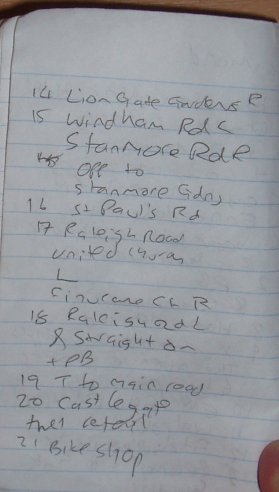 14 Lion Gate Gardens R
15 Windham Rd L
Stanmore Rd R
off to
Stanmore Gdns
16 St Paul's Rd
17 Raleigh Road
United Church
L
Finucane Ct R
18 Raleigh Rd L
& Straight on
+ PB
19 T to main road
20 Castlegate
then retail
21 Bike Shop